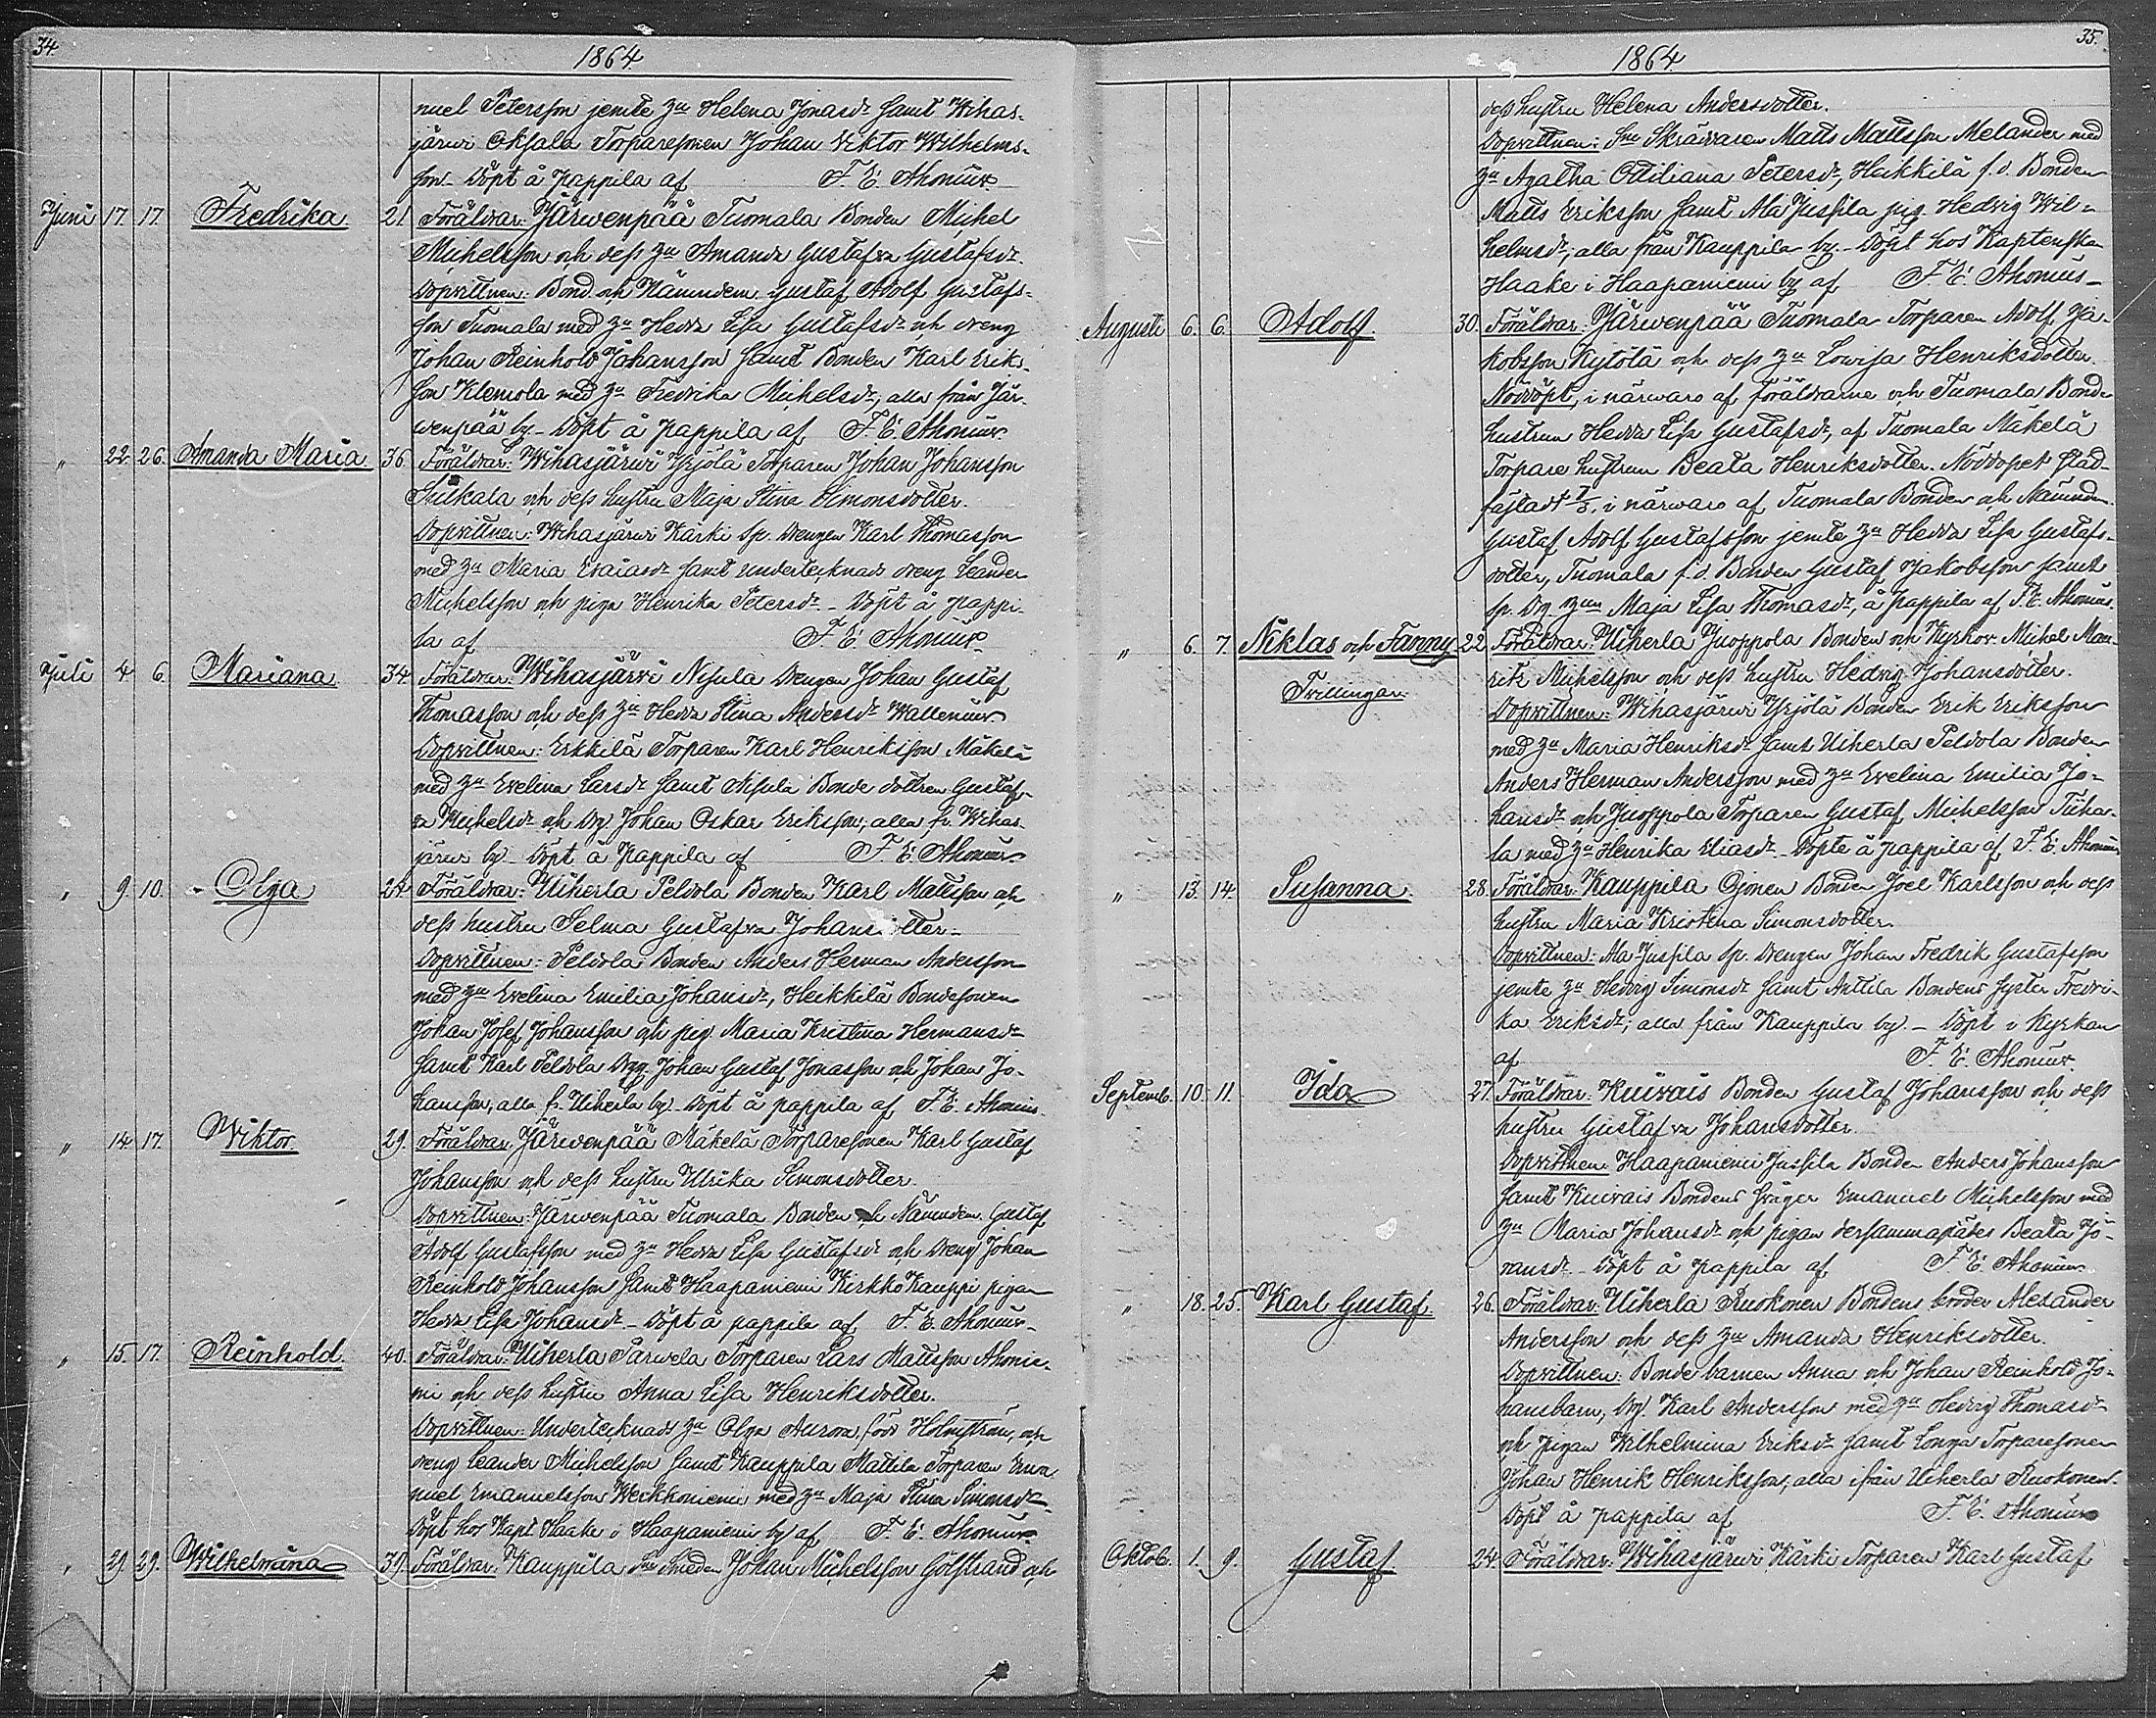 34.
1864.
nuel Petersson jemte Hu Helena Jonasdr samt Wihas-
järwi Oksala Torparesonen Johan Viktor Wilhelms-
son. Döpt å pappila af F. E. Ahonius.
Juni 17. 17. Fredrika 21. Föräldrar: Järwenpää Tuomala Bonden Michel
Michelsson och dess Hu Amanda Gustafva Gustafsdr.
Dopvittnen: Bond. och Nämndem. Gustaf Adolf Gustafs-
son Tuomala med Hu Hedda Lisa Gustafsdr och dreng
Johan Reinhold Johansson samt Bonden Karl Eriks-
son Klemola med Hu Fredrika Michelsdr, alla från Jär-
wenpää by. Döpt å pappila af F. E. Ahonius.
" 22. 26. Amanda Maria 36. Föräldrar: Wihasjärwi Yrjölä Torparen Johan Johansson
och dess hustru Maja Stina Simonsdotter.
Dopvittnen: Wihasjärwi Kärki Sp. Drengen Karl Thomasson
med Hu Maria Esaiasdr samt undertecknads dreng Leander
Michelsson och piga Henrika Petersdr. Döpt å pappi-
la af F. E. Ahonius.
Juli 4. 6. Mariana. 34. Föräldrar: Wihasjärwi Nisula Drengen Johan Gustaf
Thomasson och dess Hu Hedda Stina Andersdr Wallenius.
Dopvittnen: Erkkilä Torparen Karl Henriksson Mäkelä
med Hu Evelina Larsdr samt Nisula Bonde dottren Gustaf-
va Michelsdr och Drg Johan Oskar Eriksson, alla fr. Wihas-
järwi by. Döpt å Pappila af F. E. Ahonius.
" 9. 10. Olga 24. Föräldrar: Uiherla Peldola Bonden Karl Mattsson och
dess hustru Selma Gustafva Johansdotter.
Dopvittnen: Peldola Bonden Anders Herman Andersson
med Hu Evelina Emilia Johansdr, Heikkilä Bondesonen
Johan Josef Johansson och pig. Maria Kristina Hermansdr
samt Karl Peldola Drgg. Johan Gustaf Jonasson och Johan Jo-
hansson, alla fr. Uiherla by. Döpt å pappila af F. E. Ahonius.
" 14. 17. Wiktor. 29. Föräldrar: Järwenpää Mäkelä Torparesonen Karl Gustaf
Johansson och dess hustru Ulrika Simonsdotter.
Dopvittnen: Järwenpää Tuomala Bonden och Nämndem. Gustaf
Adolf Gustafsson med Hu Hedda Lisa Gustafsdr och Dreng Johan
Reinhold Johansson samt Haapaniemi Kirkko Kauppi pigan
Hedda Lisa Johansdr. Döpt å pappila af F. E. Ahonius.
" 15. 17. Reinhold. 40. Föräldrar: Uiherla Särwelä Torparen Lars Mattsson Ahonie-
mi och dess hustru Anna Lisa Henriksdotter.
Dopvittnen: Undertecknads Hu Olga Aurora, född Holmström, och
dreng Leander Michelsson samt Kauppila Mattila Torparen Ema-
nuel Emanuelsson Werkkoniemi med Hu Maja Stina Simonsdr.
Döpt hos Kapt. Haake i Haapaniemi by af F. E. Ahonius.
" 29. 29. Wilhelmina 39. Föräldrar: Kauppila Sne Smeden Johan Michelsson Golfstrand och
35.
1864.
dess hustru Helena Andersdotter.
Dopvittnen: Sne Skräddaren Matts Mattsson Melander med
Hu Agatha Ottiliana Petersdr, Heikkilä f.d. Bonden
Matts Eriksson samt Ala Jussila pig. Hedvig Wil-
helmsdr; alla från Kauppila by. Döpt hos Kaptenskan
Haake i Haapaniemi by af F. E. Ahonius.
Augusti 6. 6. Adolf. 30. Föräldrar: Järwenpää Tuomala Torparen Adolf Ja-
kobsson Kytölä och dess Hu Lowisa Henriksdotter.
Nöddöpt, i närwaro af föräldrarne och Tuomala Bonde-
hustrun Hedda Lisa Gustafsdr, af Tuomala Mäkelä
Torpare hustrun Beata Henriksdotter. Nöddopet stad-
fästadt 7/8, i närwaro af Tuomala Bonden och Nämndem.
Gustaf Adolf Gustafsson jemte Hu Hedda Lisa Gustafs-
dotter, Tuomala f.d. Bonden Gustaf Jakobsson samt
Sp. Drg. Hun Maja Lisa Thomasdr, å pappila af F. E. Ahonius.
" 6. 7. Niklas och Fanny 22. Föräldrar: Uiherla Juoppola Bonden och Kyrkov. Michel Mau-
Tvillingar.
ritz Michelsson och dess hustru Hedvig Johansdotter.
Dopvittnen: Wihasjärwi Yrjölä Bonden Erik Eriksson
med Hu Maria Henriksdr samt Uiherla Peldola Bonden
Anders Herman Andersson med Hu Evelina Emilia Jo-
hansdr och Juoppola Torparen Gustaf Michelsson Tiiha-
la med Hu Henrika Eliasdr. Döpte å pappila af F. E. Ahonius
" 13. 14. Susanna. 28. Föräldrar: Kauppila Ojonen Bonden Joel Karlsson och dess
hustru Maria Kristina Simonsdotter.
Dopvittnen: Ala-Jussila Sp. Drengen Johan Fredrik Gustafsson
jemte Hu Hedvig Simonsdr samt Anttila Bondens syster Fredri-
ka Eriksdr; alla från Kauppila by. Döpt i Kyrkan
af F. E. Ahonius.
Septemb. 10. 11. Ida 27. Föräldrar: Kuivais Bonden Gustaf Johansson och dess
hustru Gustafva Johansdotter.
Dopvittnen: Haapaniemi Jussila Bonden Anders Johansson
samt Kuivais Bondens swåger Emanuel Michelsson med
Hu Maria Johansdr och pigan dersammastädes Beata Jö-
ransdr. Döpt å pappila af F. E. Ahonius.
" 18. 25. Karl Gustaf. 26. Föräldrar: Uiherla Ruokonen Bondens broder Alexander
Andersson och dess Hu Amanda Henriksdotter.
Dopvittnen: Bonde barnen Anna och Johan Reinhold Jo-
hansbarn, Drg. Karl Andersson med Hu Hedvig Thomasdr
och pigan Wilhelmina Eriksdr samt Torparesonen
Johan Henrik Henriksson, alla ifrån Uiherla Ruokonen.
Döpt å pappila af F. E. Ahonius
Oktob. 1. 9. Gustaf 24. Föräldrar: Wihasjärwi Kärki Torparen Karl Gustaf